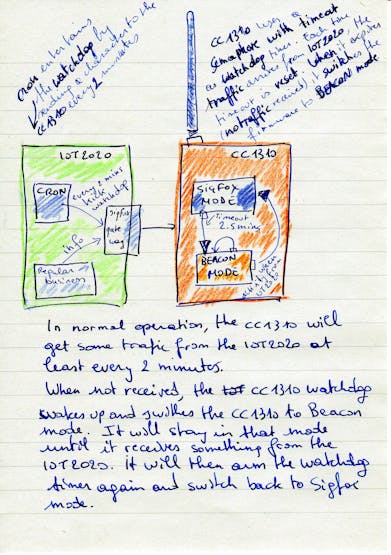 CRON entertains
the watchdog by
sending a character to the
CC1310 every 2 minutes
CC1310 uses a
semaphore with timeout
as watchdog timer. Each time
traffic arrives from IOT2020, the
timeout is reset. When it expires
(no traffic received), it switches the
firmware to BEACON mode
IOT2020
CRON
every 2 mins
kick
watchdog
Sigfox
gate
way
info
Regular
business
CC1310
SIGFOX
MODE
Timeout
2.5 mins
BEACON
MODE
when
from
IOT2020
In normal operation, the CC1310 will
get some trafic from the IOT2020 at
least every 2 minutes.
When not received, the CC1310 watchdog
wakes up and swithes the CC1310 to Beacon
mode. It will stay in that mode
until it receives something from the
IOT2020. It will then arm the watchdog
timer again and switch back to Sigfox
mode.